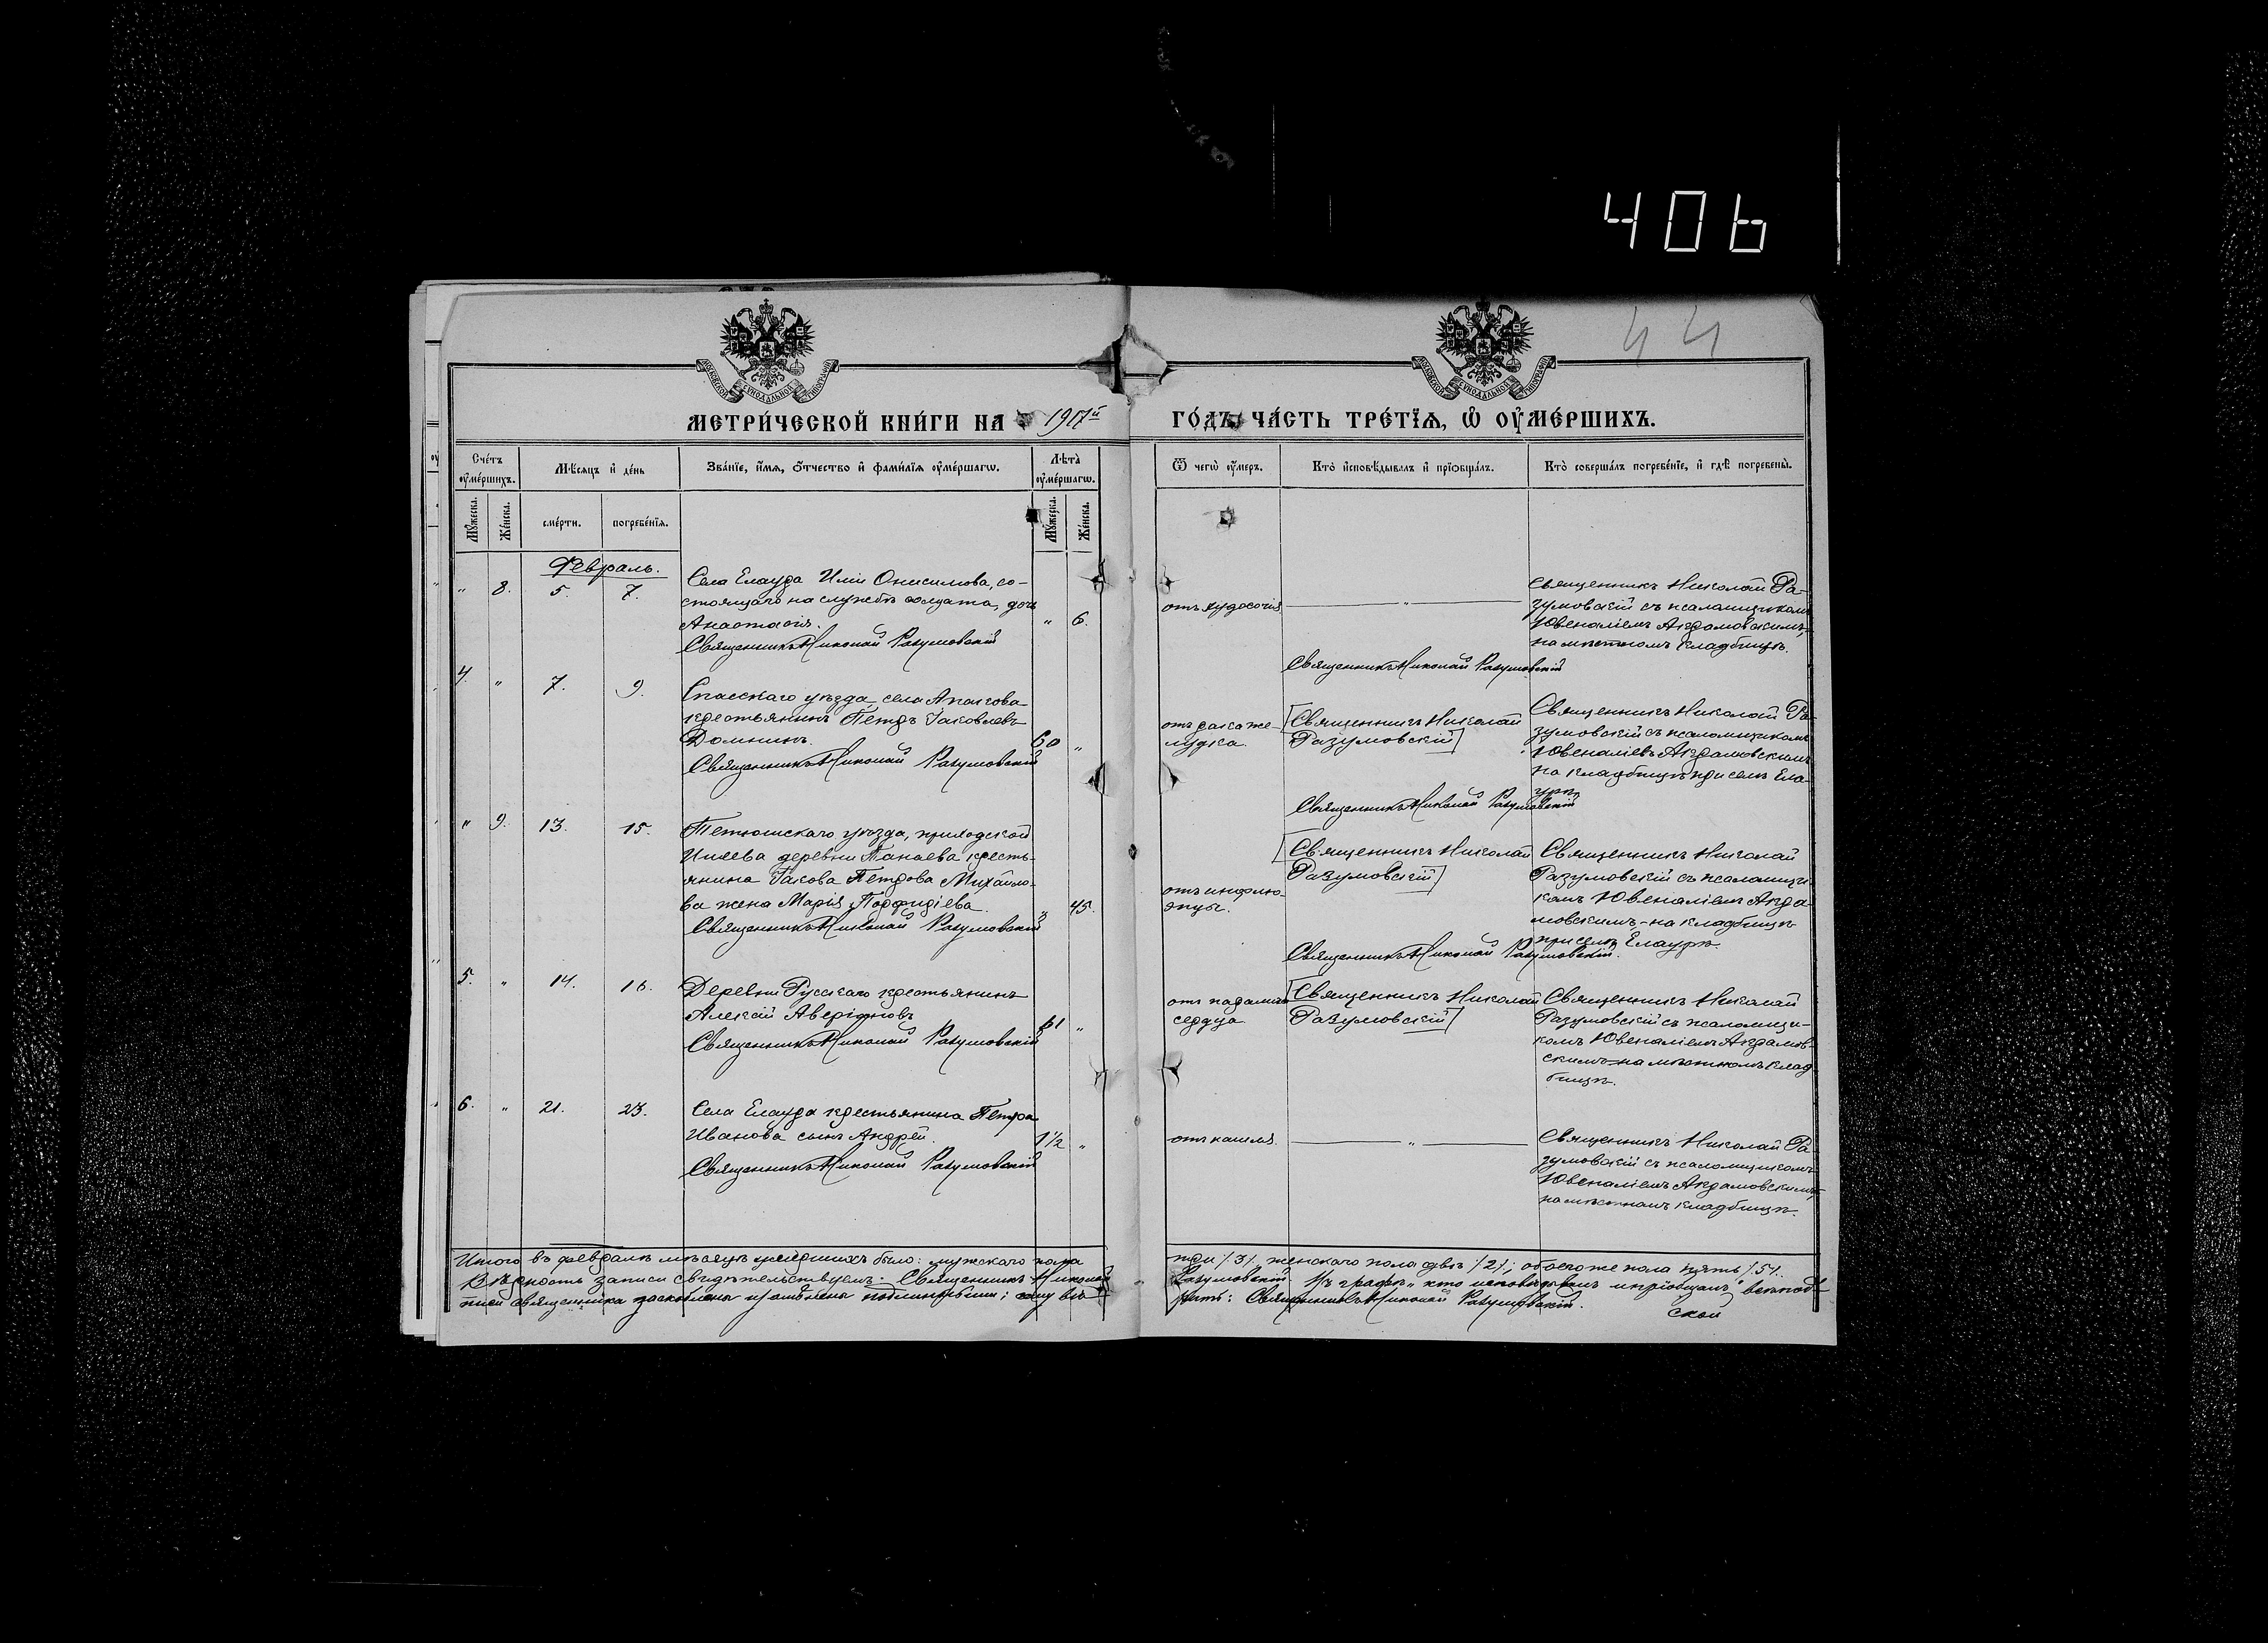 406
44
МОСКОВСКОЙ СѴНОДАЛЬНОЙ ТИПОГРАФІИ
МОСКОВСКОЙ СѴНОДАЛЬНОЙ ТИПОГРАФІИ
МЕТРИ́ЧЕСКОЙ КНИ́ГИ НА 1917й ГО́ДЪ, ЧА́СТЬ ТРЕ́ТЇѦ, Ѡ҆ ОУ҆МЕ́РШИХЪ.
Сче́тъ оу҆ме́ршихъ.
Мѣ́сяцъ и҆ де́нь
Зва́нїе, и҆́мя, ѻ҆́тчество и҆ фами́лїя оу҆ме́ршагѡ.
Лѣ́та оу҆ме́ршагѡ.
Ѿ чегѡ̀ оу҆́меръ.
Кто̀ и҆сповѣ́дывалъ и҆ прїѡбща́лъ.
Кто̀ соверша́лъ погребе́нїе, и҆ гдѣ̀ погребены̀.
Мꙋ́жеска.
Же́нска.
сме́рти.
погребе́нїя.
Мꙋ́жеска.
Же́нска.
Февраль.
" 8. 5. 7.
Села Елаура Иліи Онисимова, со-
стоящаго на службѣ солдата, дочь
Анастасія.
Священникъ Николай Разумовскій
" 6.
отъ худосочія
"
Священникъ Николай Разумовскій
Священникъ Николай Ра-
зумовскій съ псаломщикомъ
Ювеналіемъ Акрамовскимъ,
на мѣстномъ кладбищѣ.
4. " 7. 9.
Спасскаго уѣзда села Апакова
крестьянинъ Петръ Іаковлевъ
Домнинъ.
Священникъ Николай Разумовскій
60 "
отъ рака же-
лудка.
Священникъ Николай
Разумовскій
Священникъ Николай Разумовскій
Священникъ Николай Ра-
зумовскій съ псаломщикомъ
Ювеналіевъ Акрамовскимъ
на кладбищѣ при селѣ Ела-
урѣ.
" 9. 13. 15.
Тетюшскаго уѣзда, приходской
деревни Танаева кресть-
янина Іакова Петрова Михайло-
ва жена Марія Порфиріева.
Священникъ Николай Разумовскій
" 45.
отъ инфлю-
энцы.
Священникъ Николай
Разумовскій
Священникъ Николай Разумовскій.
Священникъ Николай
Разумовскій съ псаломщи-
комъ Ювеналіемъ Акра-
мовскимъ - на кладбищѣ
при селѣ Елаурѣ.
5. " 14. 16.
Деревни Русскаго крестьянинъ
Алексій Аверіановъ
Священникъ Николай Разумовскій
61 "
сердца.
Священникъ Николай
Разумовскій
Священникъ Николай
Разумовскій съ псаломщи-
комъ Ювеналіемъ Акрамов-
скимъ на мѣстномъ клад-
бищѣ.
6. " 21. 23.
Села Елаура крестьянина Петра
Иванова сынъ Андрей.
Священникъ Николай Разумовскій
1½ "
отъ кашля.
"
Священникъ Николай Ра-
зумовскій съ псаломщикомъ
Ювеналіемъ Акрамовскимъ,
на мѣстномъ кладбищѣ.
Итого въ февралѣ мѣсяцѣ умершихъ было: мужескаго пола три /3/, женскаго пола двѣ /2/; обоего же пола пять /5/.
Вѣрность записи свидѣтельствуемъ: Священникъ Николай Разумовскій. Въ графѣ "кто исповѣдывалъ и пріобщалъ"
писи священника Священникъ Николай Разумовскій.